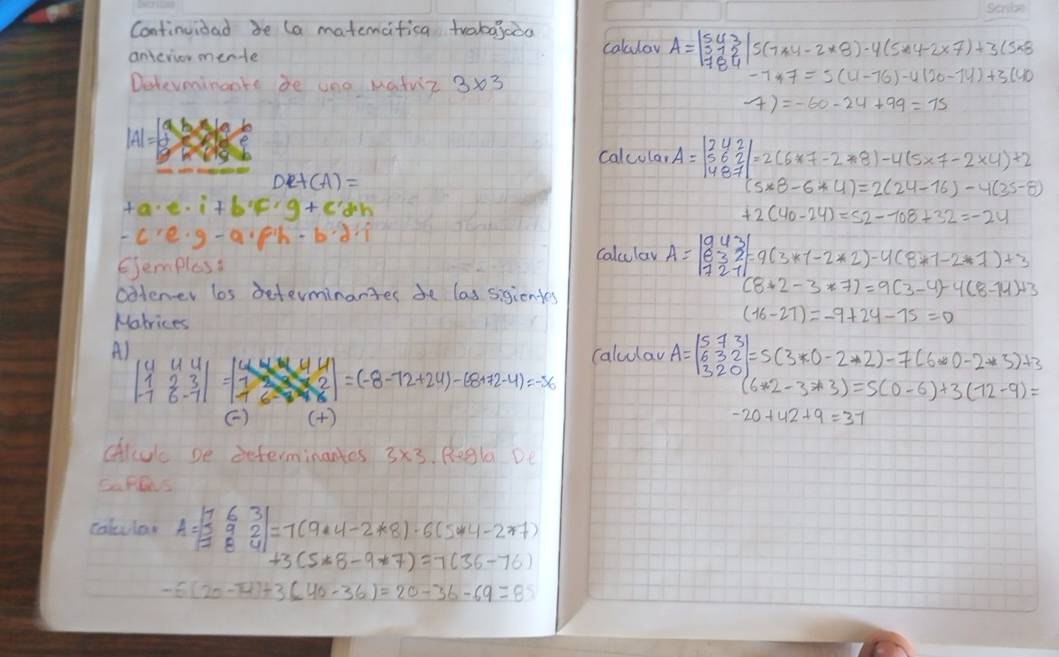 Continuidad de la matemática trabajada
anterior mente
Determinante de una Matriz 3x3
|A|=
Det(A)=
+a·e·i+b·F·g+c·d·h
-c·e·g-a·f·h-b·d·i
Ejemplos:
Obtener los determinantes de las sigientes
Matrices
A)
|4 4 4|
|1 2 3| = = (-8-12+24)-(8+72-4)=-36
|-1 6 -1|
(-) (+)
Cálculo De determinantes 3x3. Regla De
Calcular A= |7 6 3|
|5 9 2| =1(9*4-2*8)-6(5*4-2*7)
|7 8 4|
+3(5*8-9*7)=1(36-16)
-6(20-14)+3(40-36)=20-36-69=85
Scribe
calcular A= |5 4 3|
|5 1 2| 5(1*4-2*8)-4(5*4-2x7)+3(5*8
|7 8 4|
-1*7=5(4-16)-4(20-14)+3(40
-7)=-60-24+99=15
Calcular A= |2 4 2|
|5 6 2| =2(6*7-2*8)-4(5x7-2x4)+2
|4 8 7|
(5*8-6*4)=2(24-16)-4(35-8)
+2(40-24)=52-108+32=-24
Calcular A= |9 4 3|
|8 3 2| =9(3*1-2*2)-4(8*1-2*7)+3
|7 2 1|
(8*2-3*7)=9(3-4)-4(8-14)+3
(16-21)=-9+24-15=0
Calcular A= |5 7 3|
|6 3 2| =5(3*0-2*2)-7(6*0-2*3)+3
|3 2 0|
(6*2-3*3)=5(0-6)+3(12-9)=
-20+42+9=31